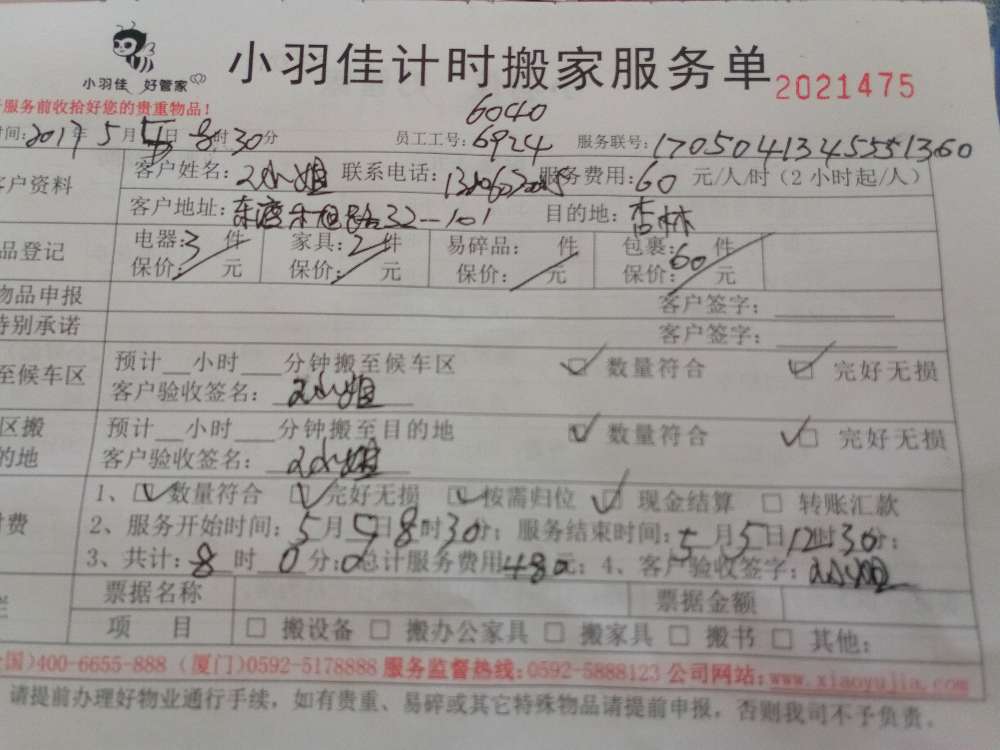 小羽佳 好管家
小羽佳计时搬家服务单
2021475
服务前收拾好您的贵重物品!
6040
时间:2017年5月5日8时30分 员工工号:6924 服务联号:1705041345551360
客户资料 客户姓名: 小姐 联系电话: 服务费用:60 元/人/时(2小时起/人)
客户地址:东渡 路32-101 目的地:杏林
品登记 电器:3件 家具:2件 易碎品: 件 包裹:60件
保价: 元 保价: 元 保价: 元 保价: 元
物品申报 客户签字:
特别承诺 客户签字:
至候车区 预计__小时___分钟搬至候车区 数量符合 完好无损
客户验收签名: 小姐
区搬 预计__小时___分钟搬至目的地 数量符合 完好无损
的地 客户验收签名: 小姐
1、数量符合 完好无损 按需归位 现金结算 转账汇款
付费 2、服务开始时间:5月5日8时30分;服务结束时间:5月5日12时30分;
3、共计:8时0分;总计服务费用480元;4、客户验收签字: 小姐
栏 票据名称 票据金额
项 目 搬设备 搬办公家具 搬家具 搬书 其他:
全国)400-6655-888 (厦门)0592-5178888 服务监督热线:0592-5888123 公司网站:www.xiaoyujia.com
请提前办理好物业通行手续,如有贵重、易碎或其它特殊物品请提前申报,否则我司不予负责。